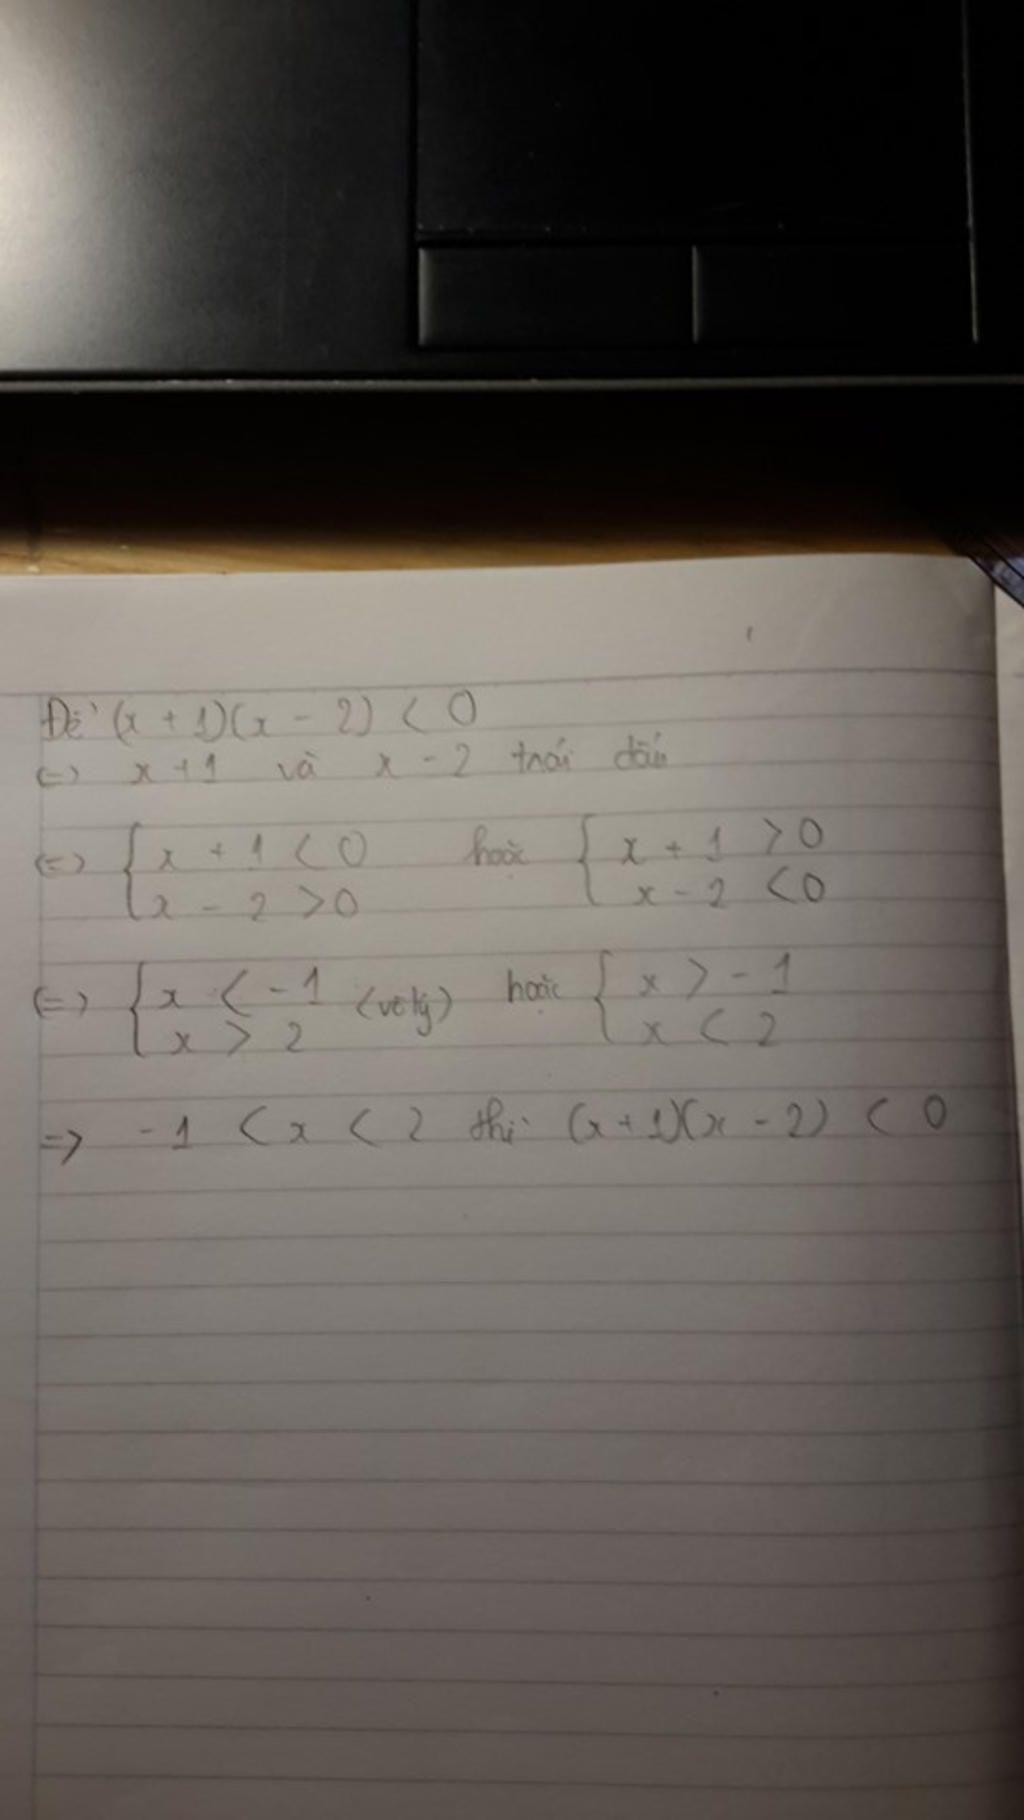 Để (x + 1)(x - 2) < 0
<=> x + 1 và x - 2 trái dấu
<=> { x + 1 < 0 hoặc { x + 1 > 0
x - 2 > 0 x - 2 < 0
<=> { x < -1 (vô lý) hoặc { x > -1
x > 2 x < 2
=> -1 < x < 2 thì (x + 1)(x - 2) < 0